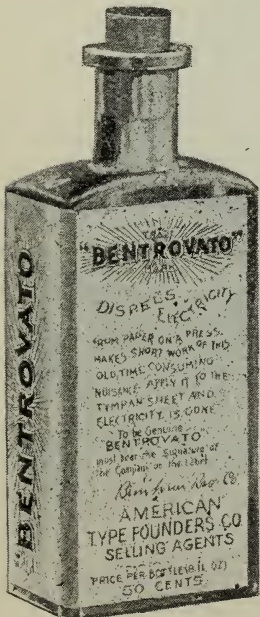 BENTROVATO
THE
"BENTROVATO"
DISPELS
ELECTRICITY
FROM PAPER ON A PRESS.
MAKES SHORT WORK OF THIS
OLD, TIME CONSUMING
NUISANCE. APPLY IT TO THE
TYMPAN SHEET AND
ELECTRICITY IS GONE
To be Genuine
"BENTROVATO"
must bear the Signature of
the Company on the Label
Co
AMERICAN
TYPE FOUNDERS CO
SELLING AGENTS
PRICE PER BOTTLE
50 CENTS